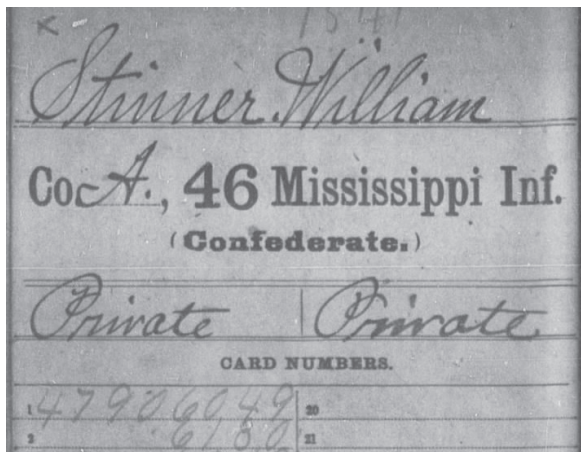 x 1541
Stinner, William
Co. A., 46 Mississippi Inf.
(Confederate.)
Private Private
CARD NUMBERS.
1 47906049 20
2 6130 21